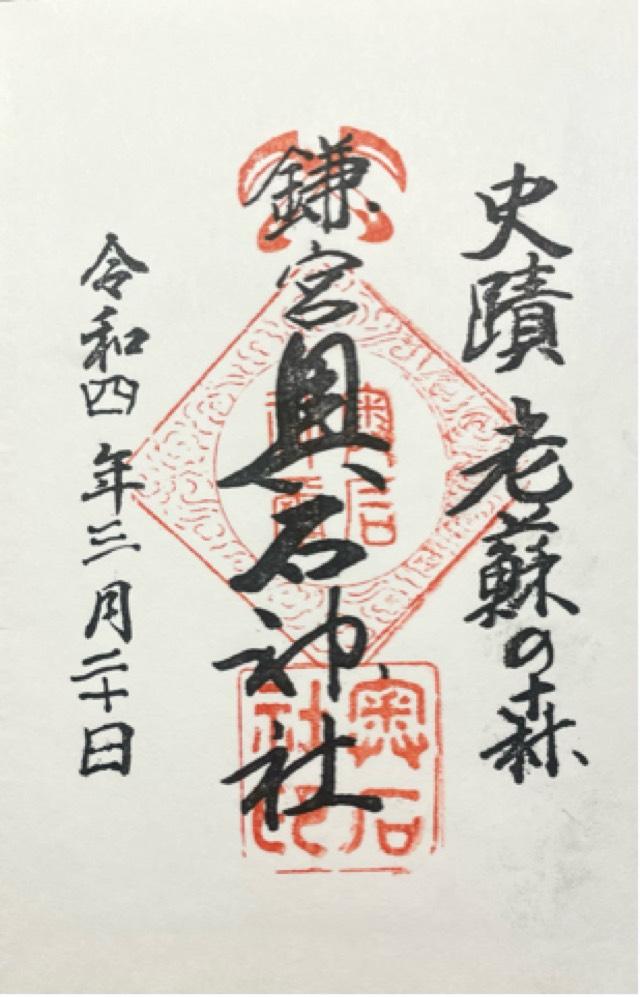 史蹟 老蘇の森
鎌宮 奥石神社
令和四年三月二十日
奥石
社印